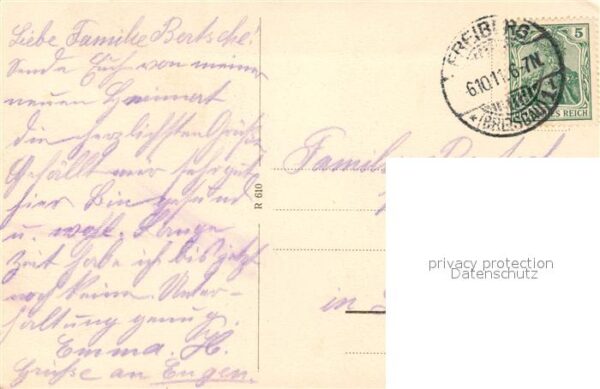 Liebe Familie Bertsche!
Sende Euch von meiner
neuen Heimat
die herzlichsten Grüße
Gefällt mir sehr gut
hier Bin gesund
u. wohl. Lange
Zeit habe ich bis jetzt
noch keine Unter-
haltung genug.
Emma. H.
Grüße an Eugen.
R 610
FREIBURG
6.10.11. 6-7N.
* (BREISGAU) 1 *
5
ES REICH
Familie
in
privacy protection
Datenschutz